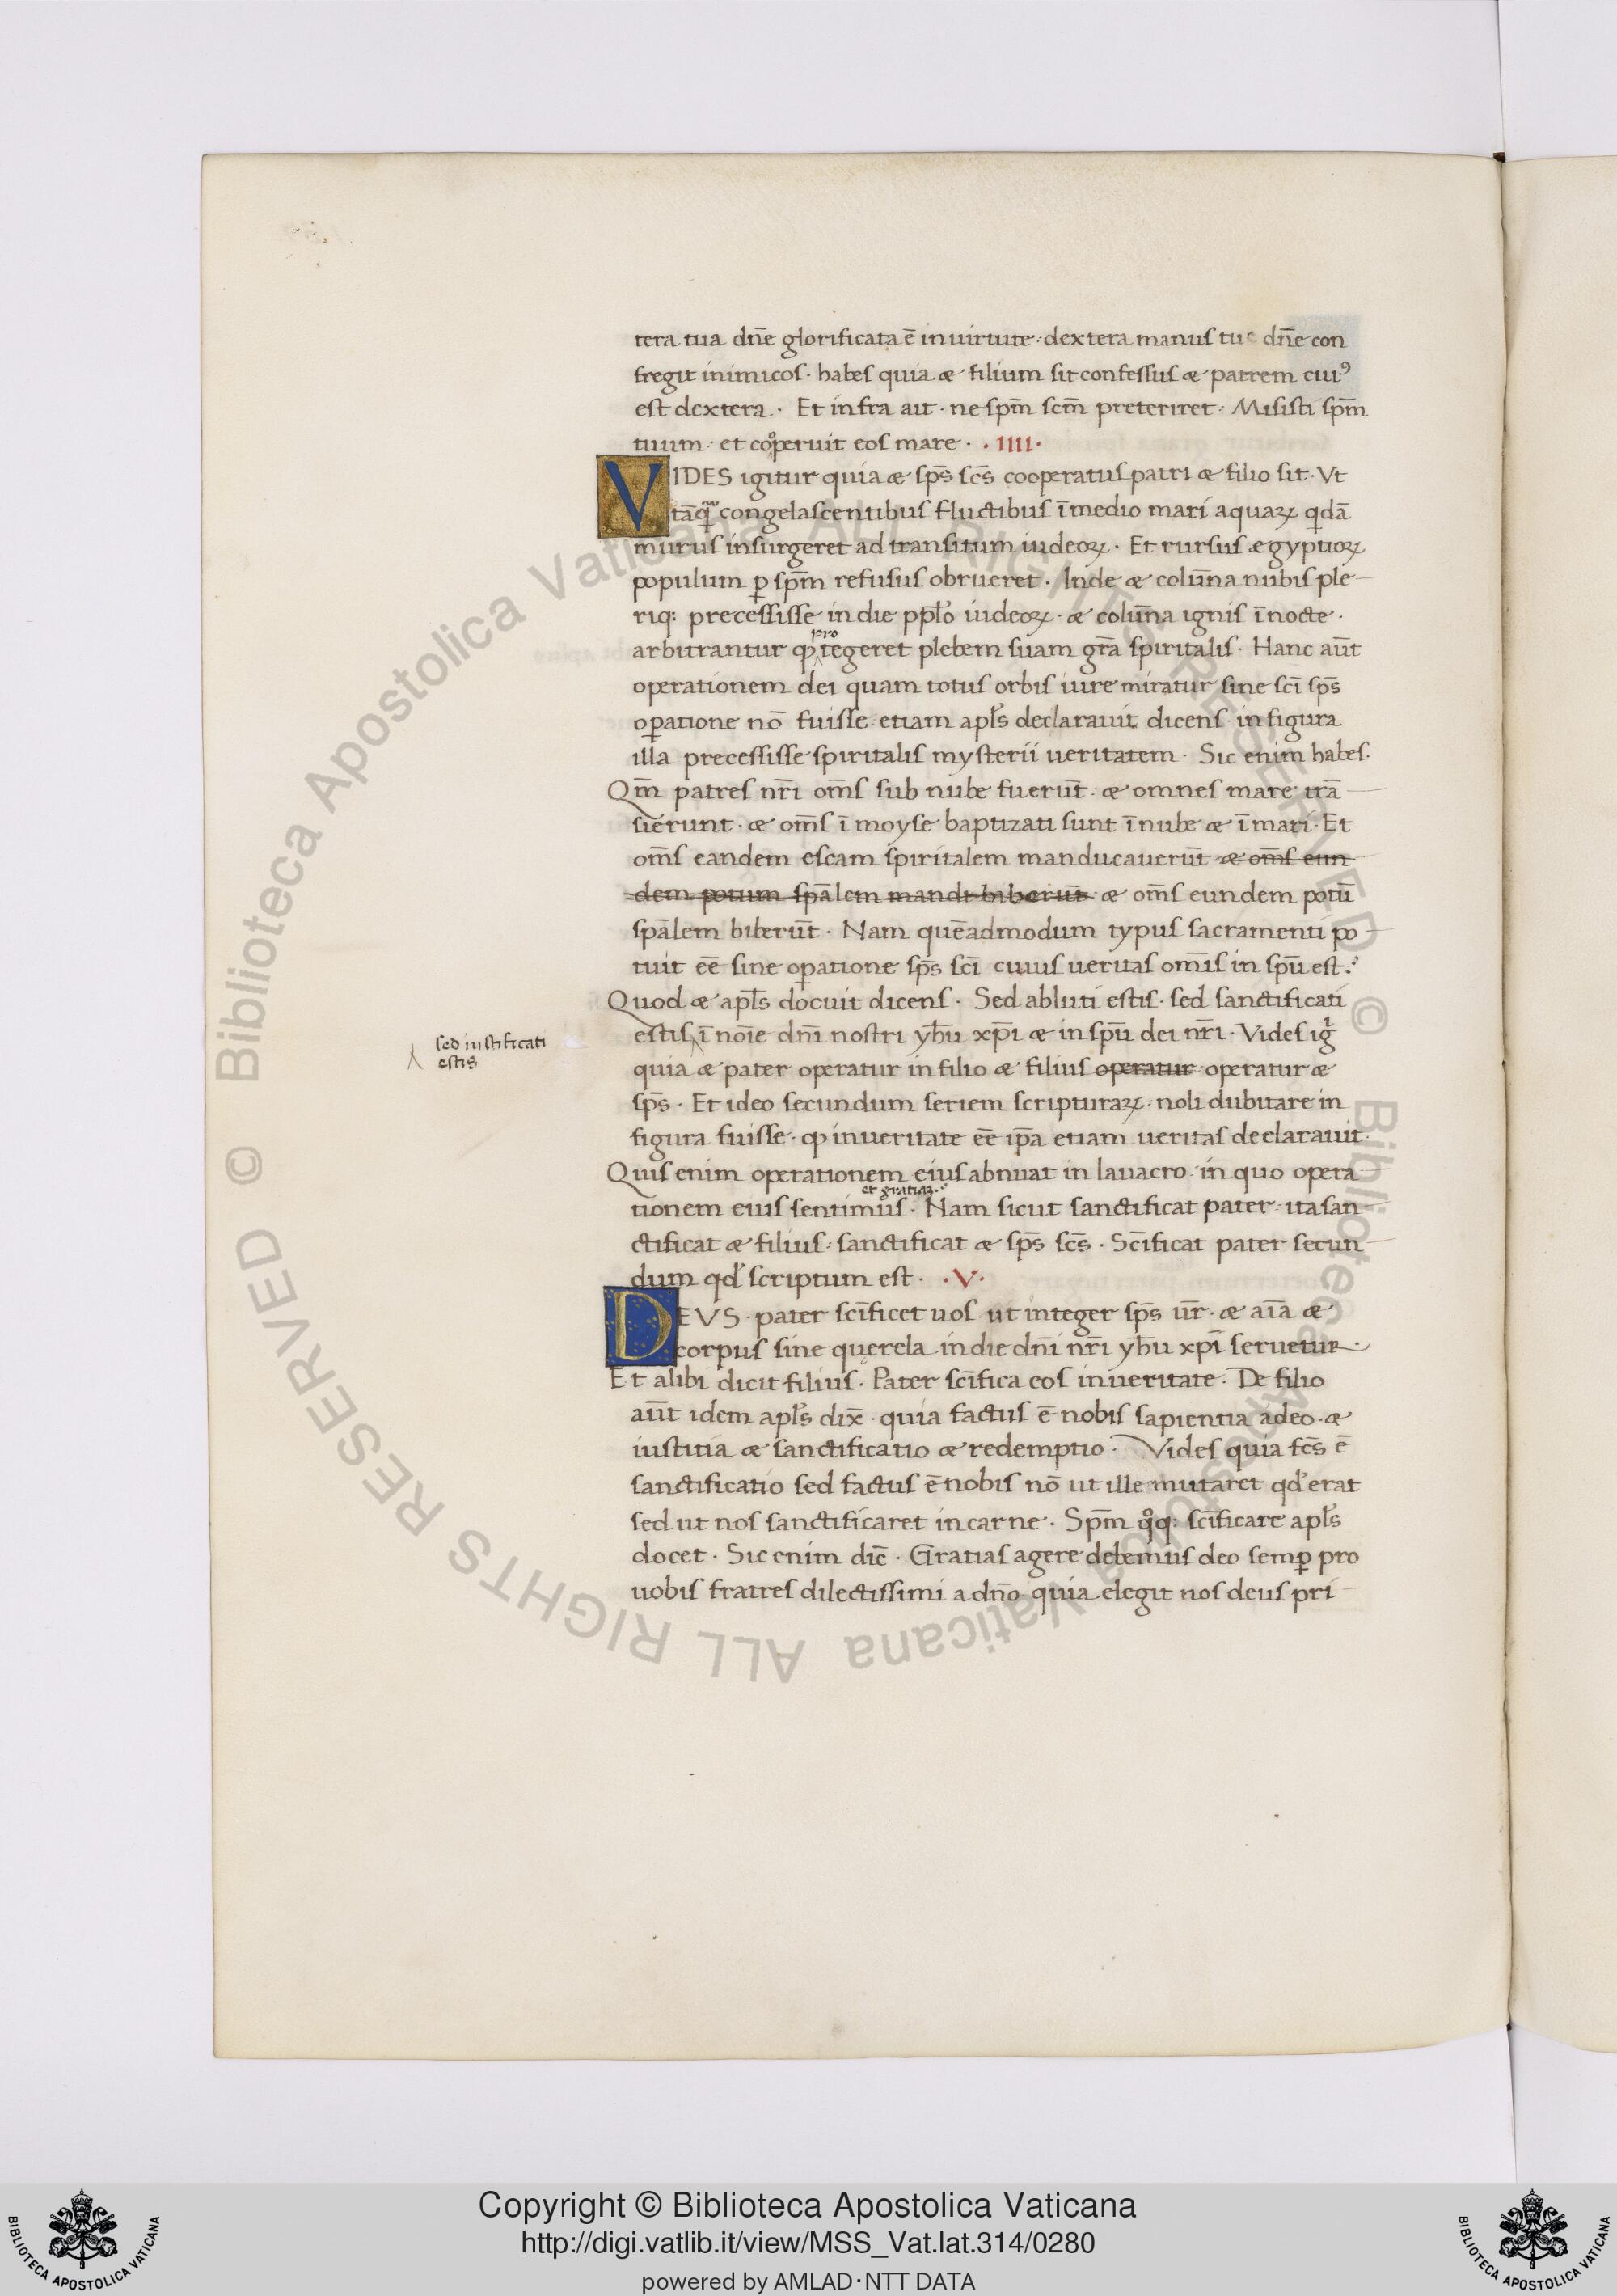 tera tua dn̄e glorificata ē in uirtute· dextera manus tue dn̄e con
fregit inimicos· habes quia æ filium sit confessus æ patrem cuiꝰ
est dextera · Et infra ait · ne sp̄m sc̄m preteriret · Misisti sp̄m
tuum · et cooperuit eos mare · · IIII ·
VIDES igitur quia æ sp̄s sc̄s cooperatus patri æ filio sit · Vt
tāqꝫ congelascentibus fluctibus ī medio mari aquaꝝ qdā
murus insurgeret ad transitum iudeoꝝ · Et rursus ægyptioꝝ
populum ꝑ sp̄m refusus obrueret · Inde æ colūna nubis ple
riq: precessisse in die pp̄lo iudeoꝝ · æ colūna ignis ī nocte ·
pro
arbitrantur ꝙ tegeret plebem suam gr̄a spiritalis · Hanc aūt
operationem dei quam totus orbis iure miratur sine sc̄i sp̄s
oꝑatione nō fuisse etiam apl̄s declarauit dicens · in figura
illa precessisse spiritalis mysterii ueritatem · Sic enim habes ·
Qm̄ patres nr̄i om̄s sub nube fuerūt · æ omnes mare trā
sierunt · æ om̄s ī moyse baptizati sunt ī nube æ ī mari · Et
om̄s eandem escam spiritalem manducauerūt æ om̄s eun
dem potum spālem mandi biberūt æ om̄s eundem potū
spālem biberūt · Nam quēadmodum typus sacramenti po
tuit eē sine oꝑatione sp̄s sc̄i cuius ueritas om̄is in spū est ·
Quod æ apl̄s docuit dicens · Sed abluti estis · sed sanctificati
estis ī noīe dn̄i nostri yħu xp̄i æ in spū dei nr̄i · Vides igr̄
sed iustificati
estis
quia æ pater operatur in filio æ filius operatur operatur æ
sp̄s · Et ideo secundum seriem scripturaꝝ · noli dubitare in
figura fuisse · ꝙ in ueritate eē ip̄a etiam ueritas declarauit ·
Quis enim operationem eius abnuat in lauacro · in quo opera
et gratiaꝫ
tionem euis sentimus · Nam sicut sanctificat pater · ita san
ctificat æ filius · sanctificat æ sp̄s sc̄s · Sc̄ificat pater secun
dum qd' scriptum est · · V ·
DEVS · pater sc̄ificet uos ut integer sp̄s ur̄ · æ aīa æ
corpus sine querela in die dn̄i nr̄i yħu xp̄i seruetur ·
Et alibi dicit filius · Pater sc̄ifica eos in ueritate · De filio
aūt idem apl̄s dix̄ · quia factus ē nobis sapientia a deo · æ
iustitia æ sanctificatio æ redemptio · Vides quia fc̄s ē
sanctificatio sed factus ē nobis nō ut ille mutaret qd' erat
sed ut nos sanctificaret in carne · Sp̄m qͦq: sc̄ificare apl̄s
docet · Sic enim dic̄ · Gratias agere debemus deo semꝑ pro
uobis fratres dilectissimi a dn̄o quia elegit nos deus pri
Copyright © Biblioteca Apostolica Vaticana
http://digi.vatlib.it/view/MSS_Vat.lat.314/0280
powered by AMLAD·NTT DATA
BIBLIOTECA APOSTOLICA VATICANA
BIBLIOTECA APOSTOLICA VATICANA
© Biblioteca Apostolica Vaticana ALL RIGHTS RESERVED © Biblioteca Apostolica Vaticana ALL RIGHTS RESERVED